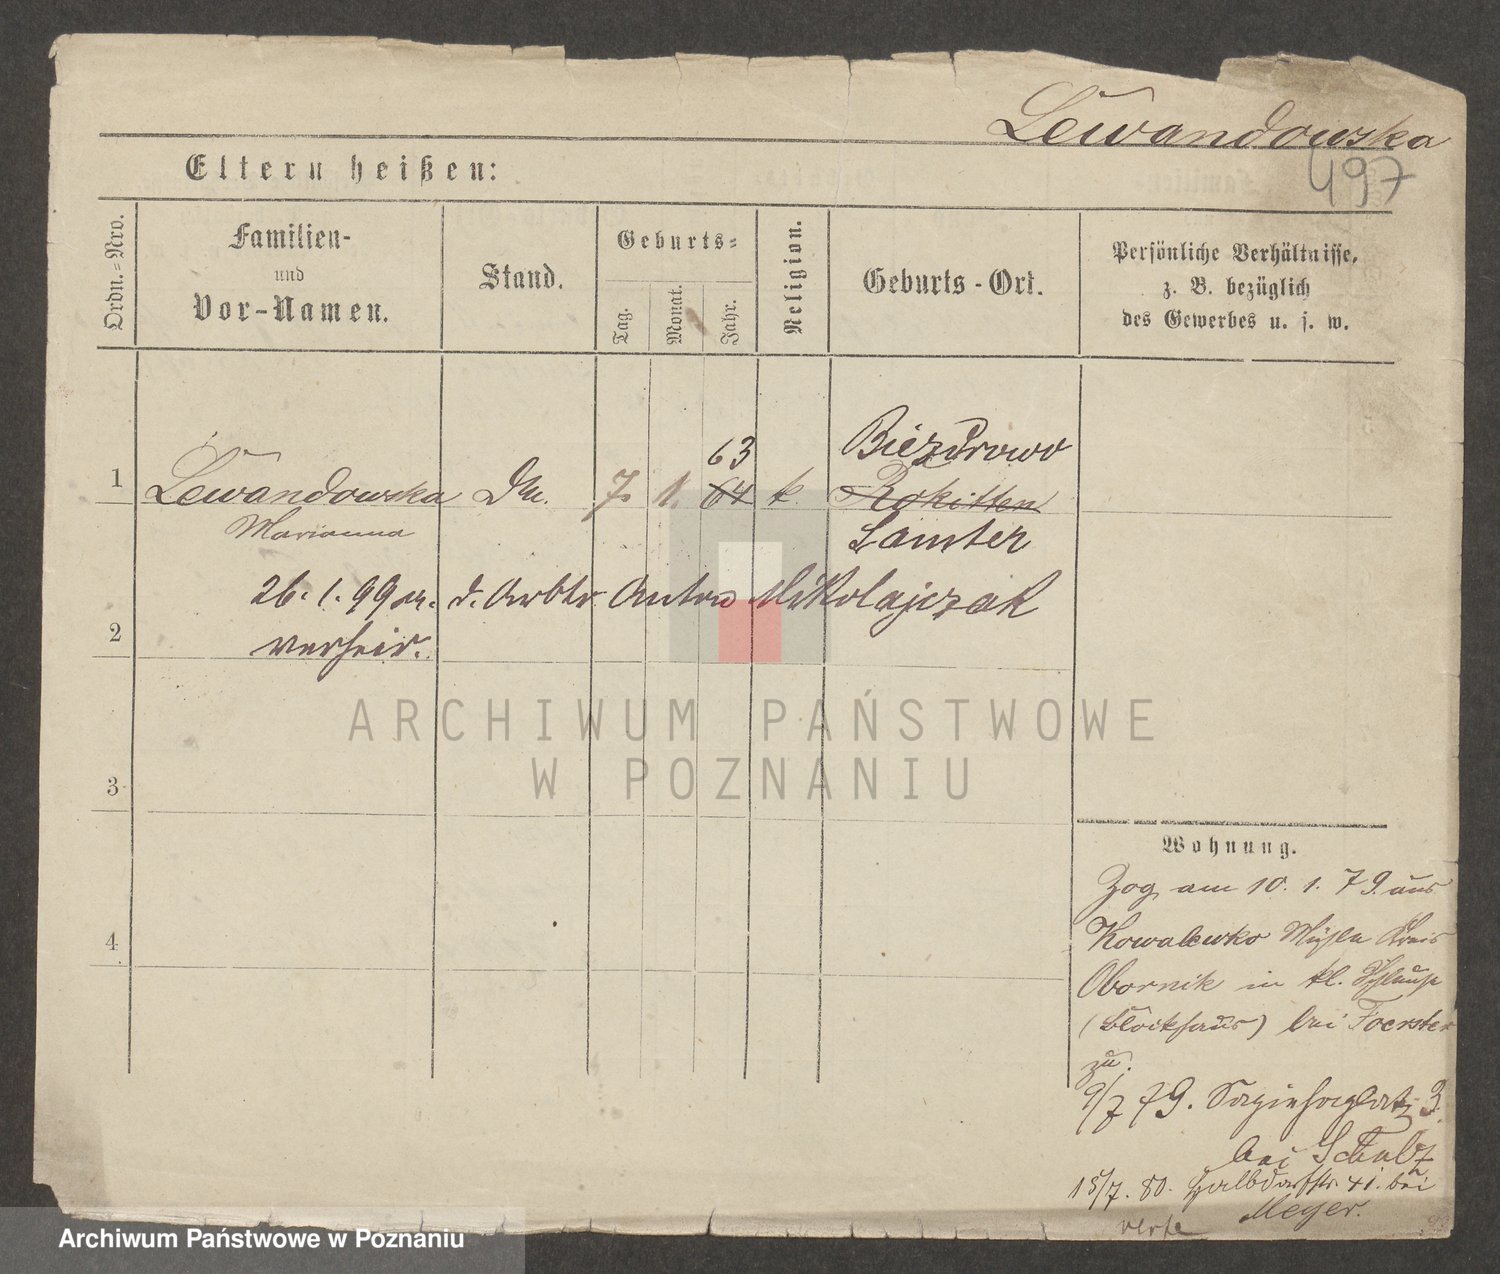 Lewandowska
497
Eltern heißen:
Ordn.=Nro.
Familien-
und
Vor-Namen.
Stand.
Geburts=
Tag.
Monat.
Jahr.
Religion.
Geburts-Ort.
Persönliche Verhältnisse,
z. B. bezüglich
des Gewerbes u. s. w.
63 Biezdrowo
1 Lewandowska 7. 1. 64 k. Rokitten
Marianna Samter
26. 1. 99 m. d. Arbtr Anton Mikolajczak
2
verheir.
ARCHIWUM PAŃSTWOWE
W POZNANIU
3
4
Wohnung.
Zog am 10. 1. 79. aus
Kowalewko Mühle Kreis
Obornik in kl.
(Blockhaus) bei Foerster
zu.
9/7 79. Sapiehaplatz 3.
bei Schulz
15/7. 80. Halbdorfstr. 41. bei
Meyer.
Archiwum Państwowe w Poznaniu